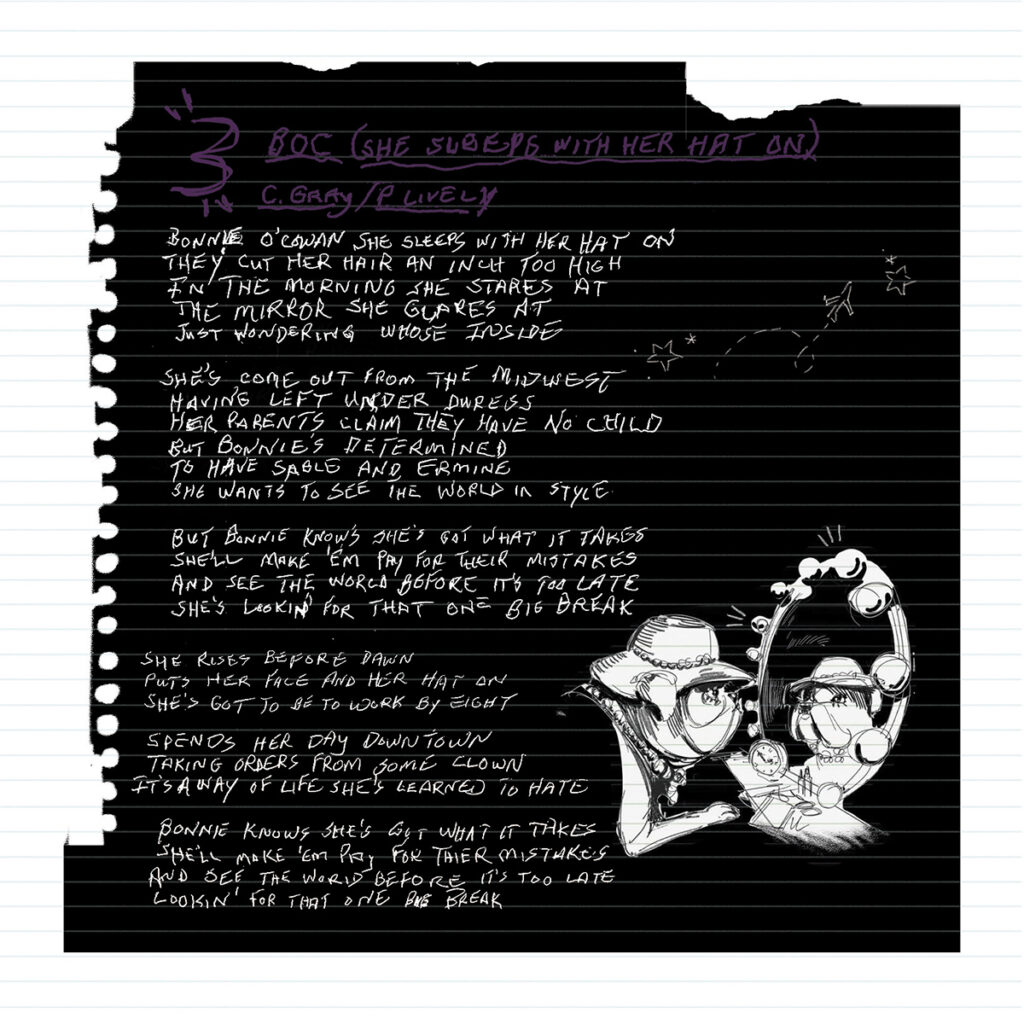 3
BOC (SHE SLEEPS WITH HER HAT ON)
C. GRAY/P LIVELY
BONNIE O'COWAN SHE SLEEPS WITH HER HAT ON
THEY CUT HER HAIR AN INCH TOO HIGH
IN THE MORNING SHE STARES AT
THE MIRROR SHE GLARES AT
JUST WONDERING WHOSE INSIDE
SHE'S COME OUT FROM THE MIDWEST
HAVING LEFT UNDER DURESS
HER PARENTS CLAIM THEY HAVE NO CHILD
BUT BONNIE'S DETERMINED
TO HAVE SABLE AND ERMINE
SHE WANTS TO SEE THE WORLD IN STYLE
BUT BONNIE KNOWS SHE'S GOT WHAT IT TAKES
SHE'LL MAKE 'EM PAY FOR THEIR MISTAKES
AND SEE THE WORLD BEFORE IT'S TOO LATE
SHE'S LOOKIN' FOR THAT ONE BIG BREAK
SHE RISES BEFORE DAWN
PUTS HER FACE AND HER HAT ON
SHE'S GOT TO BE TO WORK BY EIGHT
SPENDS HER DAY DOWNTOWN
TAKING ORDERS FROM SOME CLOWN
IT'S A WAY OF LIFE SHE'S LEARNED TO HATE
BONNIE KNOWS SHE'S GOT WHAT IT TAKES
SHE'LL MAKE 'EM PAY FOR THIER MISTAKES
AND SEE THE WORLD BEFORE IT'S TOO LATE
LOOKIN' FOR THAT ONE BIG BREAK